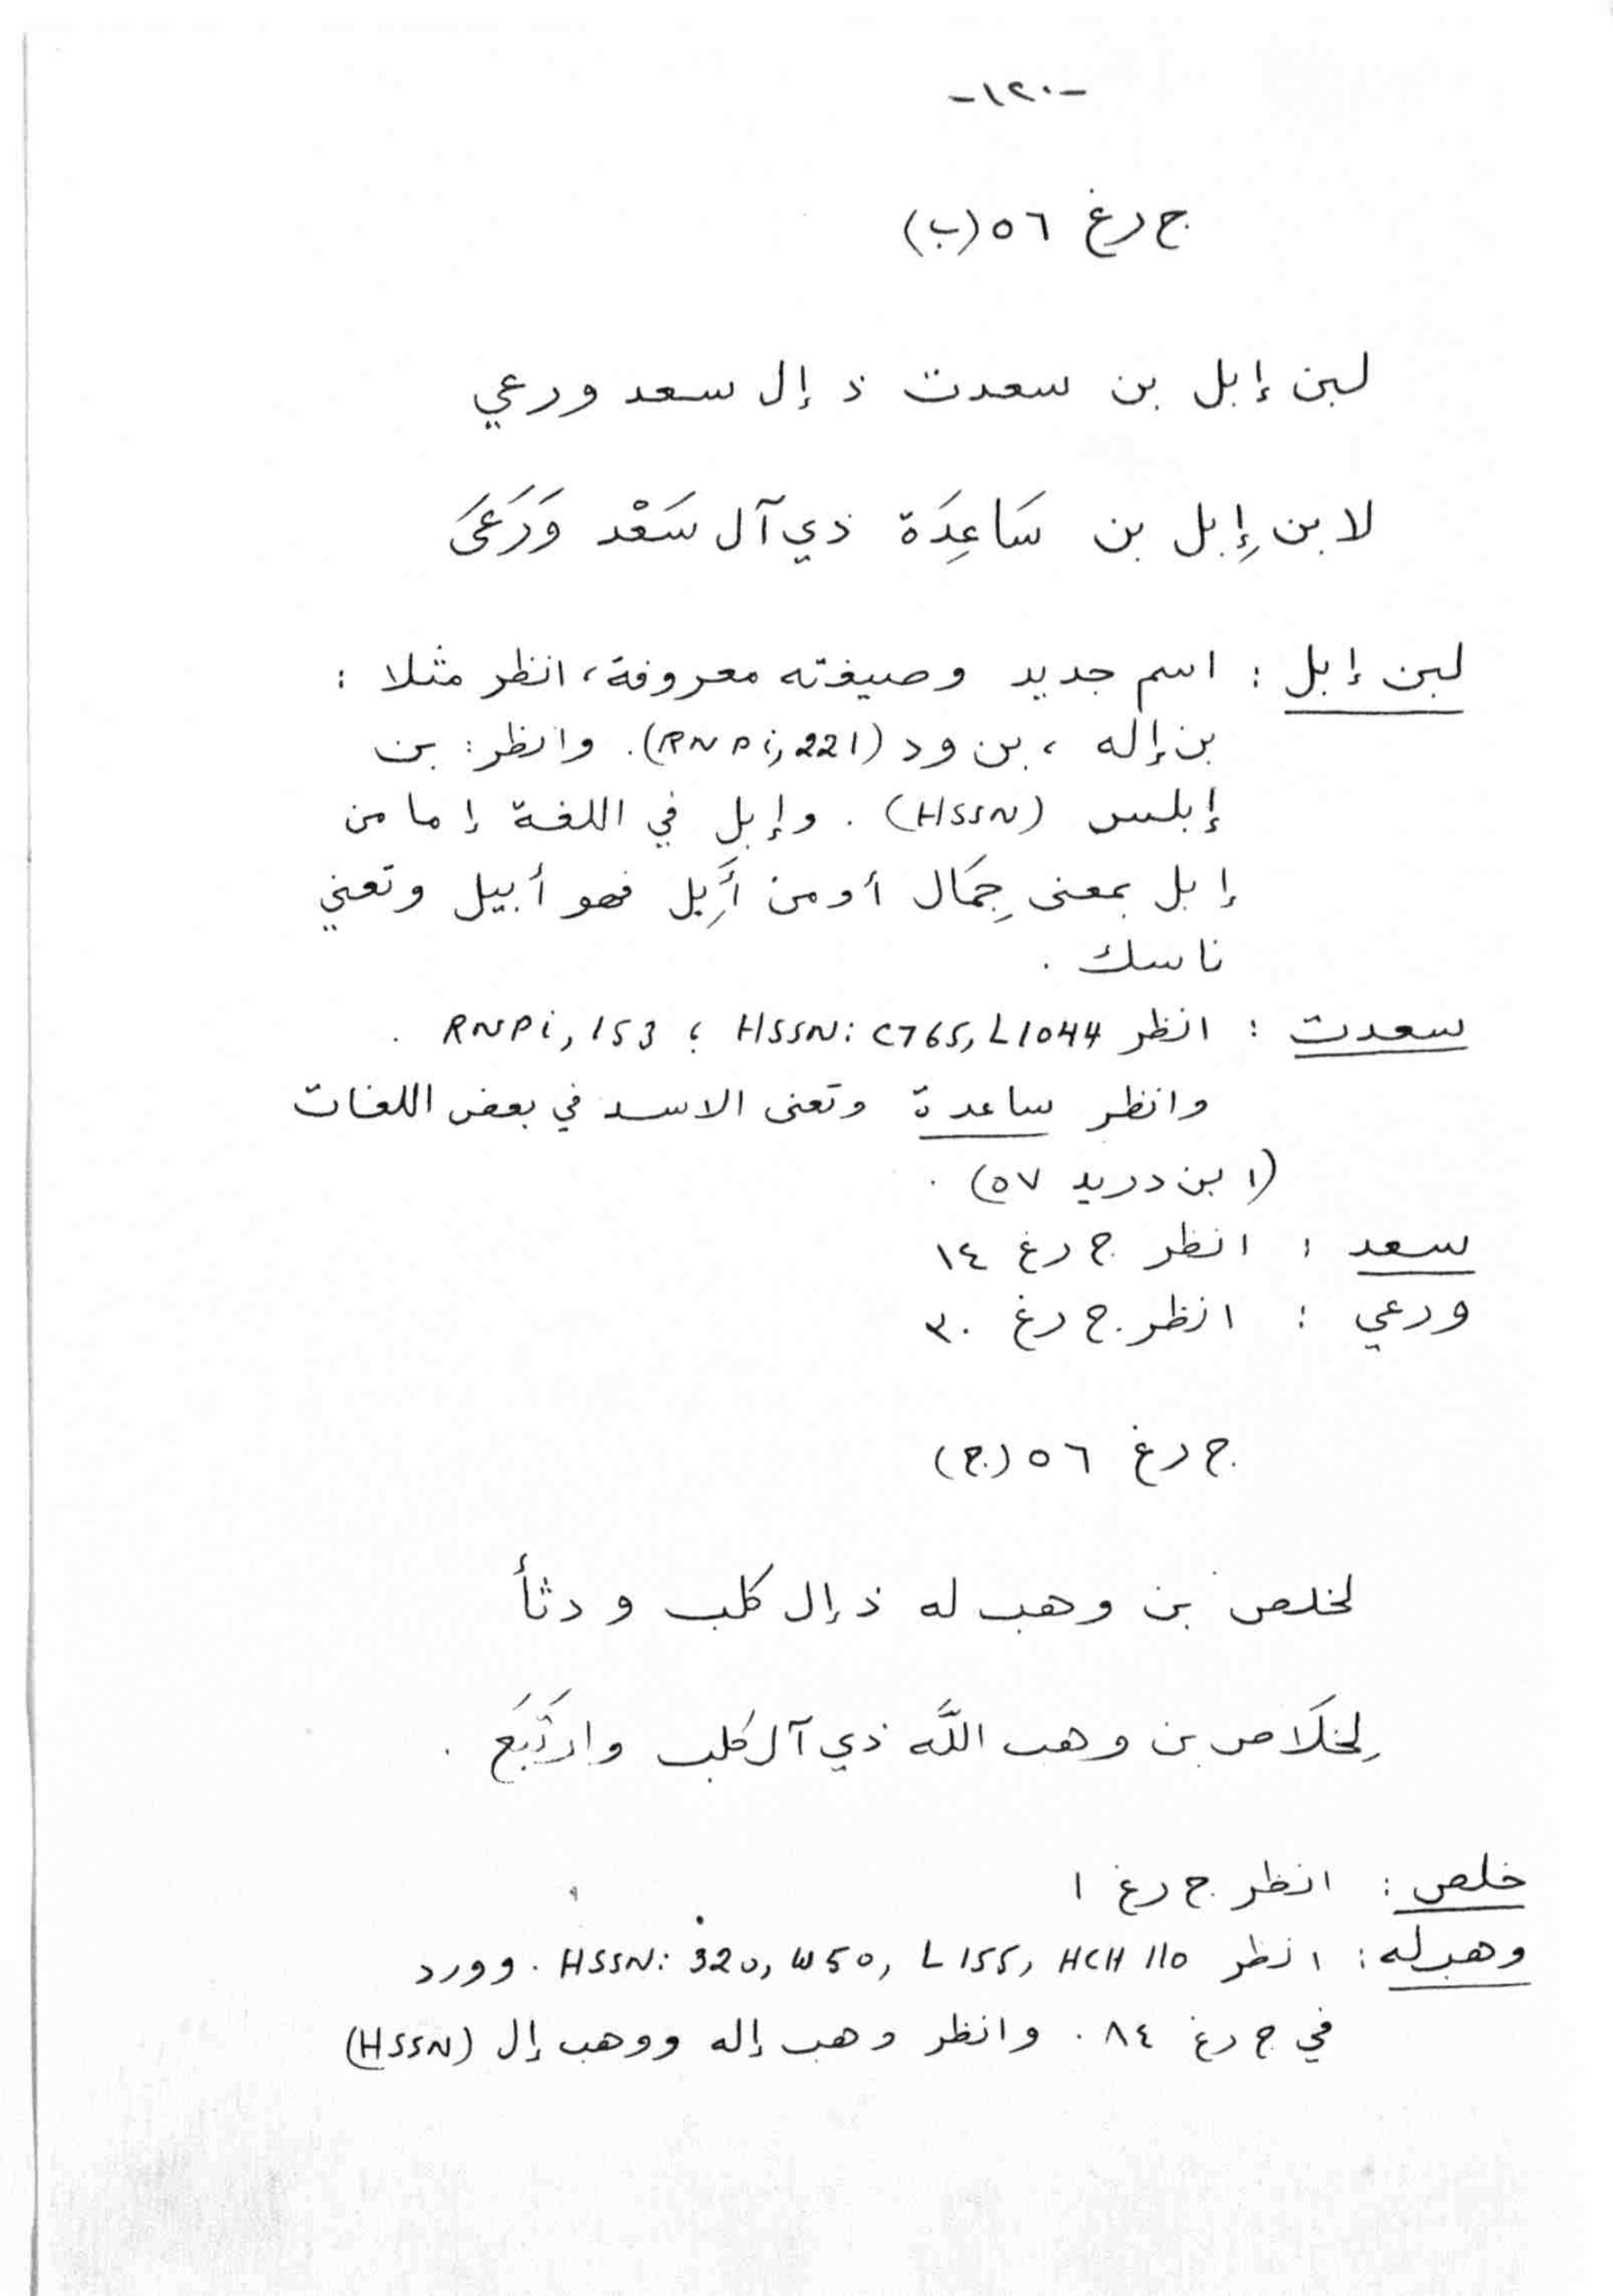 -١٢٠-
ج رغ ٥٦ (ب)
لبن إبل بن سعدت ذ إل سعد ورعي
لابن إِبل بن سَاعِدَة ذي آل سَعْد وَرَعَىَ
لبن إبل : اسم جديد وصيغته معروفة، انظر مثلا :
بن إله ، بن ود (RNPi, 221). وانظر: بن
إبلس (HSSN) . وإبل في اللغة إما من
إبل بمعنى جِمَال أو من أَبِل فهو أبيل وتعني
ناسك .
سعدت : انظر HSSN: C765, L1044 ؛ RNPi, 153 .
وانظر ساعدة وتعنى الاسد في بعض اللغات
(ابن دريد ٥٧) .
سعد : انظر ج رغ ١٤
ورعي : انظر ج رغ ٣٠
ج رغ ٥٦ (ج)
لخلص بن وهب له ذ إل كلب و دثأ
لِخَلَاص بن وهب اللَّه ذي آل كَلب وارْتَبَع .
خلص : انظر ج رغ ١
وهب له : انظر HSSN: 320, W50, L155, HCH 110 . وورد
في ج رغ ٨٤ . وانظر وهب إله ووهب إل (HSSN)